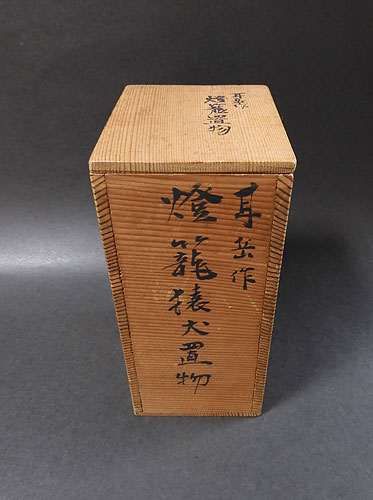 燈籠置物
耳岳作
燈籠猿犬置物